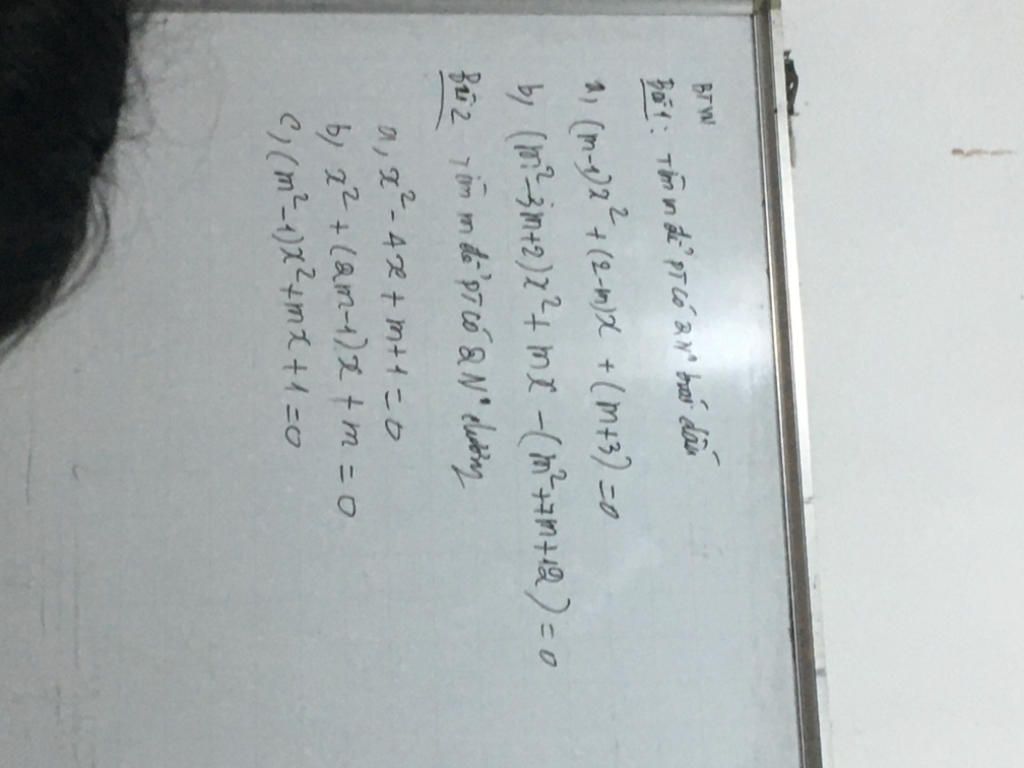 BTVN
Bài 1: Tìm m để PT có 2 N° trái dấu
a, (m-1)x² + (2-m)x + (m+3) = 0
b, (m²-3m+2)x² + mx - (m²+7m+12) = 0
Bài 2 Tìm m để PT có 2 N° dương
a, x² - 4x + m+1 = 0
b, x² + (2m-1)x + m = 0
c, (m²-1)x² + mx + 1 = 0